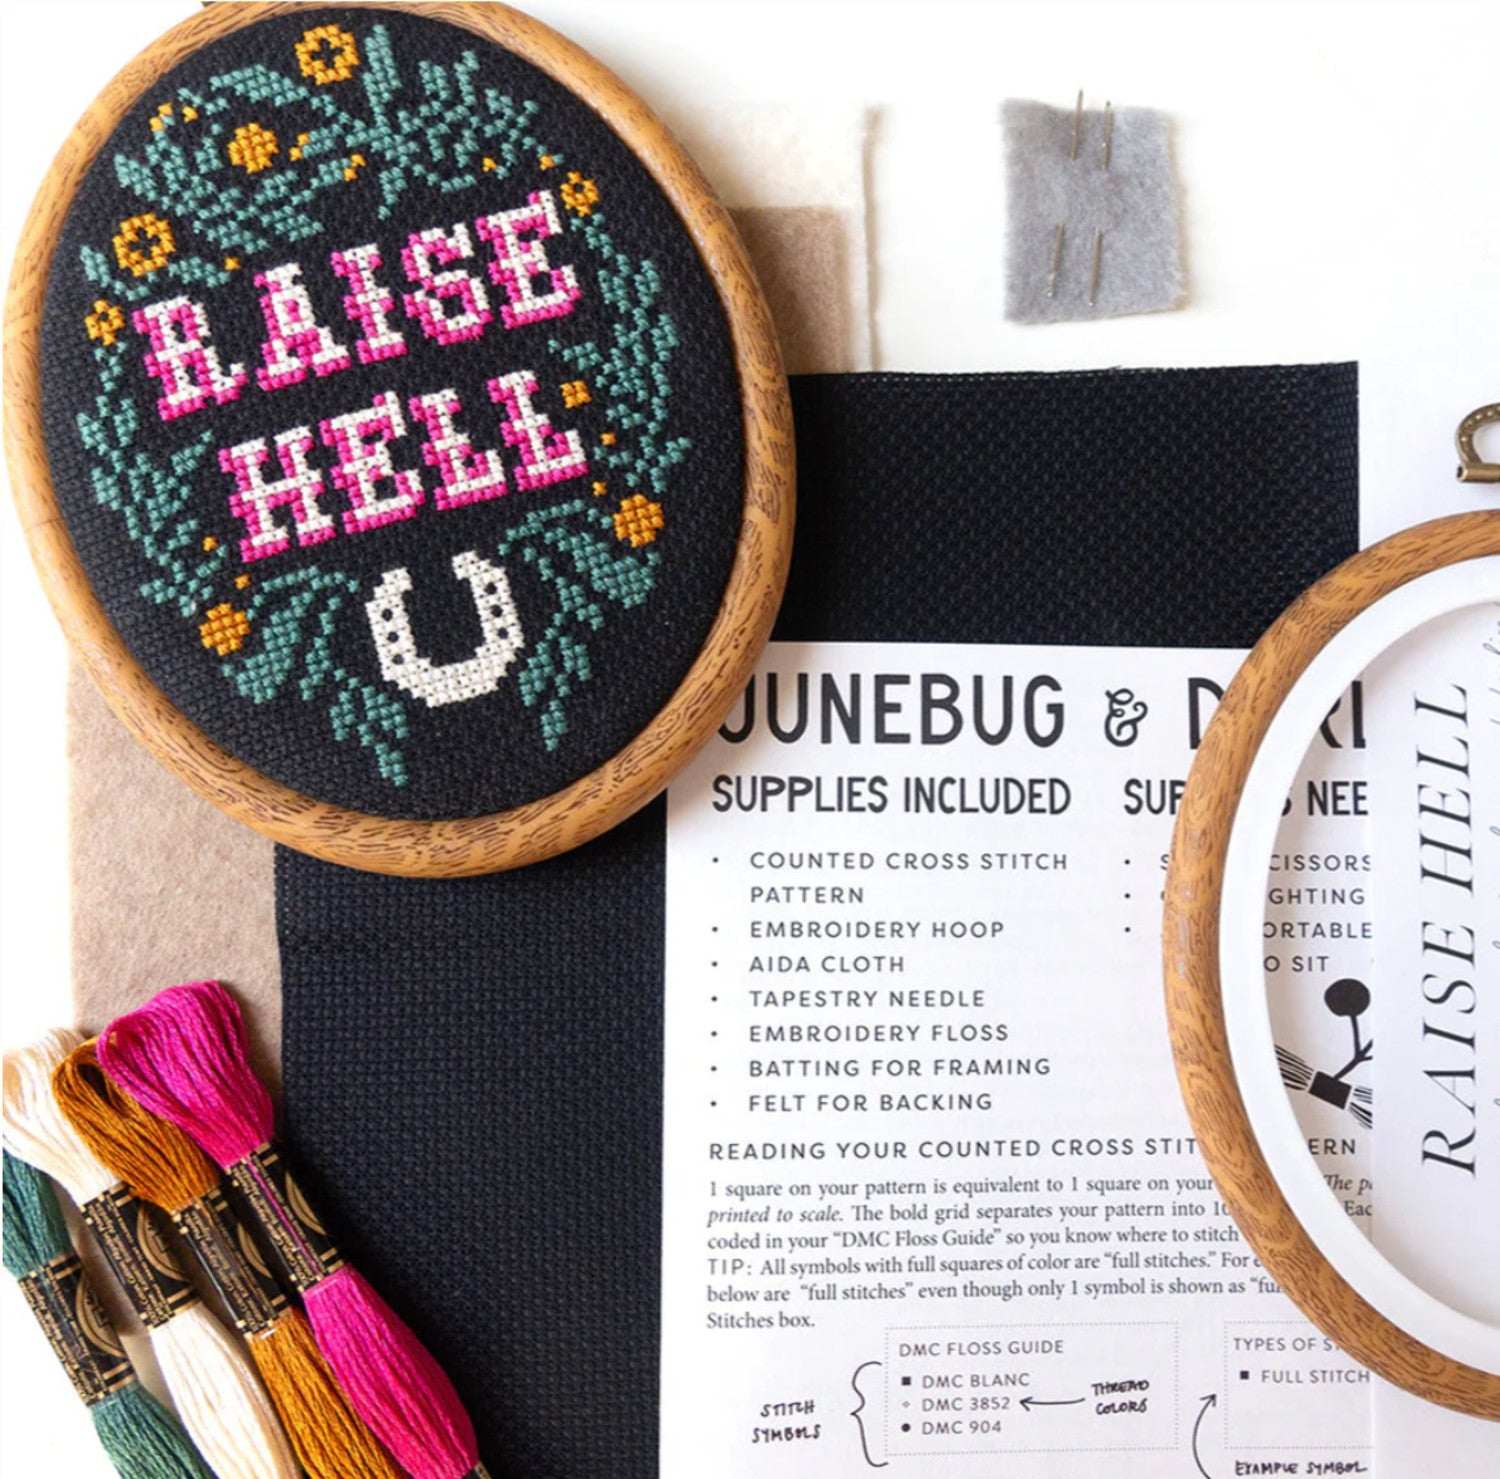 RAISE
HELL
JUNEBUG &
SUPPLIES INCLUDED
• COUNTED CROSS STITCH
PATTERN
• EMBROIDERY HOOP
• AIDA CLOTH
• TAPESTRY NEEDLE
• EMBROIDERY FLOSS
• BATTING FOR FRAMING
• FELT FOR BACKING
NEE
CISSORS
GHTING
ORTABLE
O SIT
READING YOUR COUNTED CROSS STIT ERN
1 square on your pattern is equivalent to 1 square on your The p
printed to scale. The bold grid separates your pattern into 10 Eac
coded in your “DMC Floss Guide” so you know where to stitch
TIP: All symbols with full squares of color are “full stitches.” For
below are “full stitches” even though only 1 symbol is shown as “fu
Stitches box.
DMC FLOSS GUIDE
■ DMC BLANC
⋄ DMC 3852
● DMC 904
STITCH
SYMBOLS
THREAD
COLORS
TYPES OF S
■ FULL STITCH
EXAMPLE SYMBOL
RAISE HELL